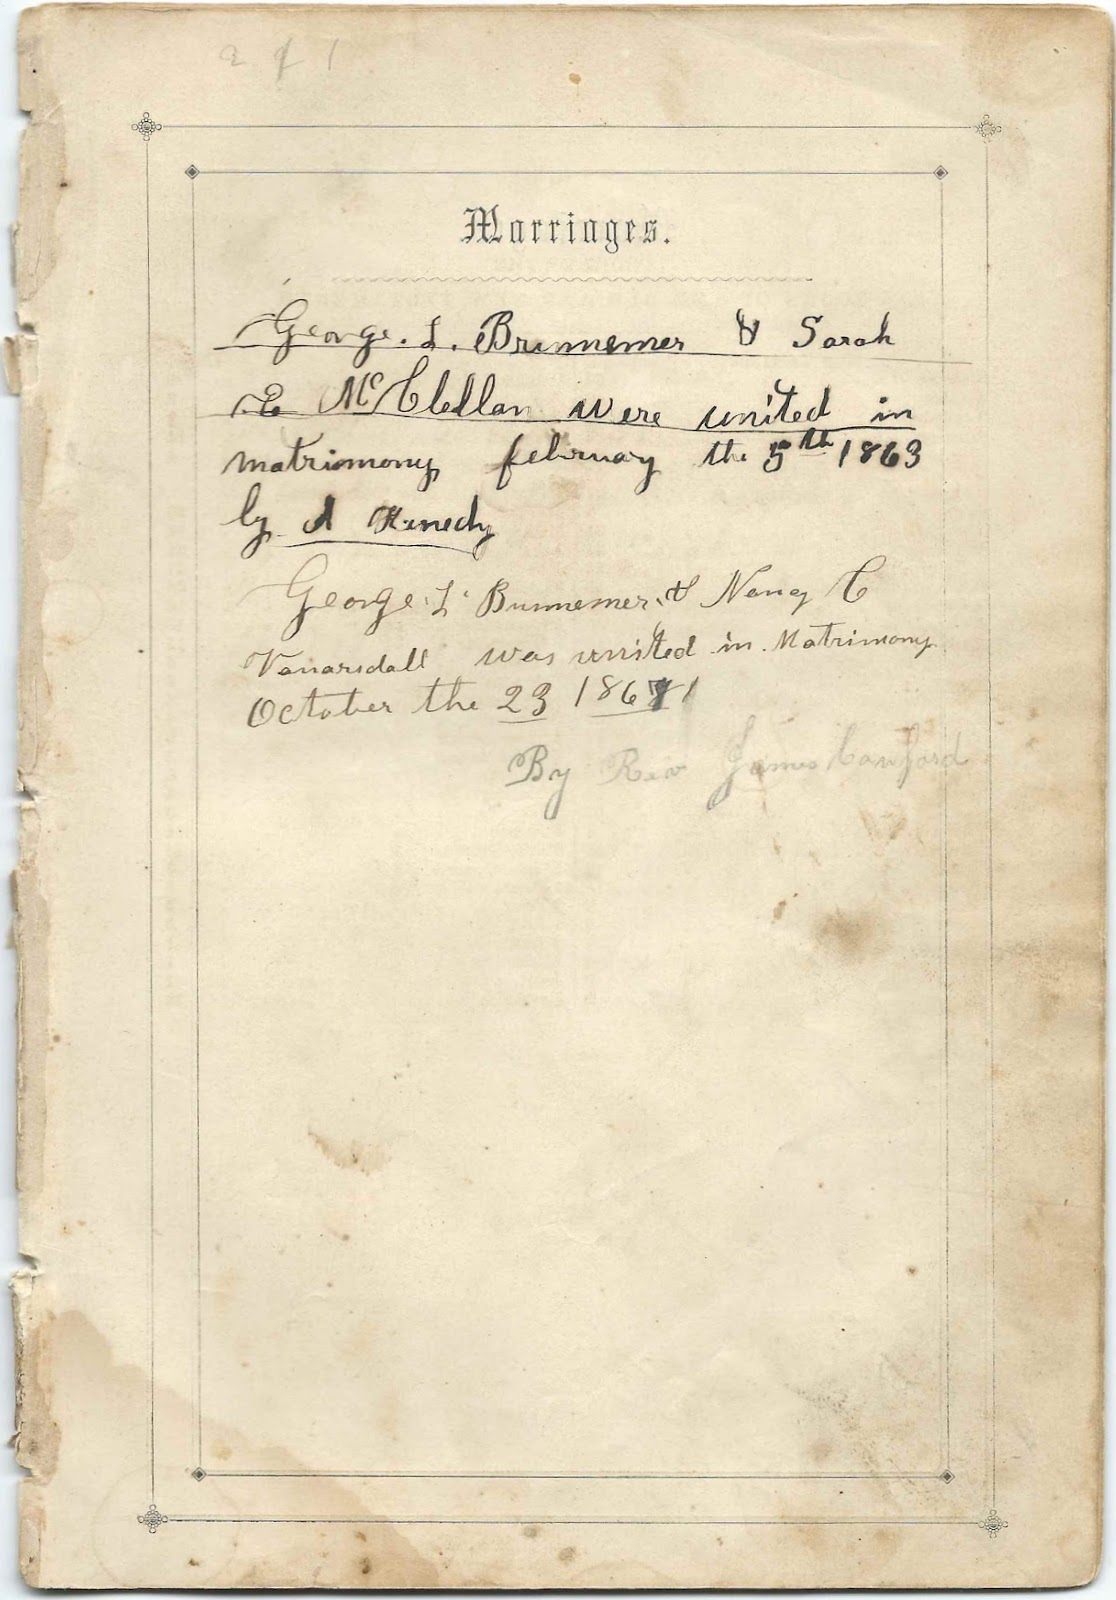 Marriages.
George. L. Brunnemer & Sarah
E McClellan were united in
matrimony february the 5th 1863
by A Kenedy
George L Brunnemer & Nancy C
Vanarsdall was united in Matrimony
October the 23 1871
By Rev James Canford